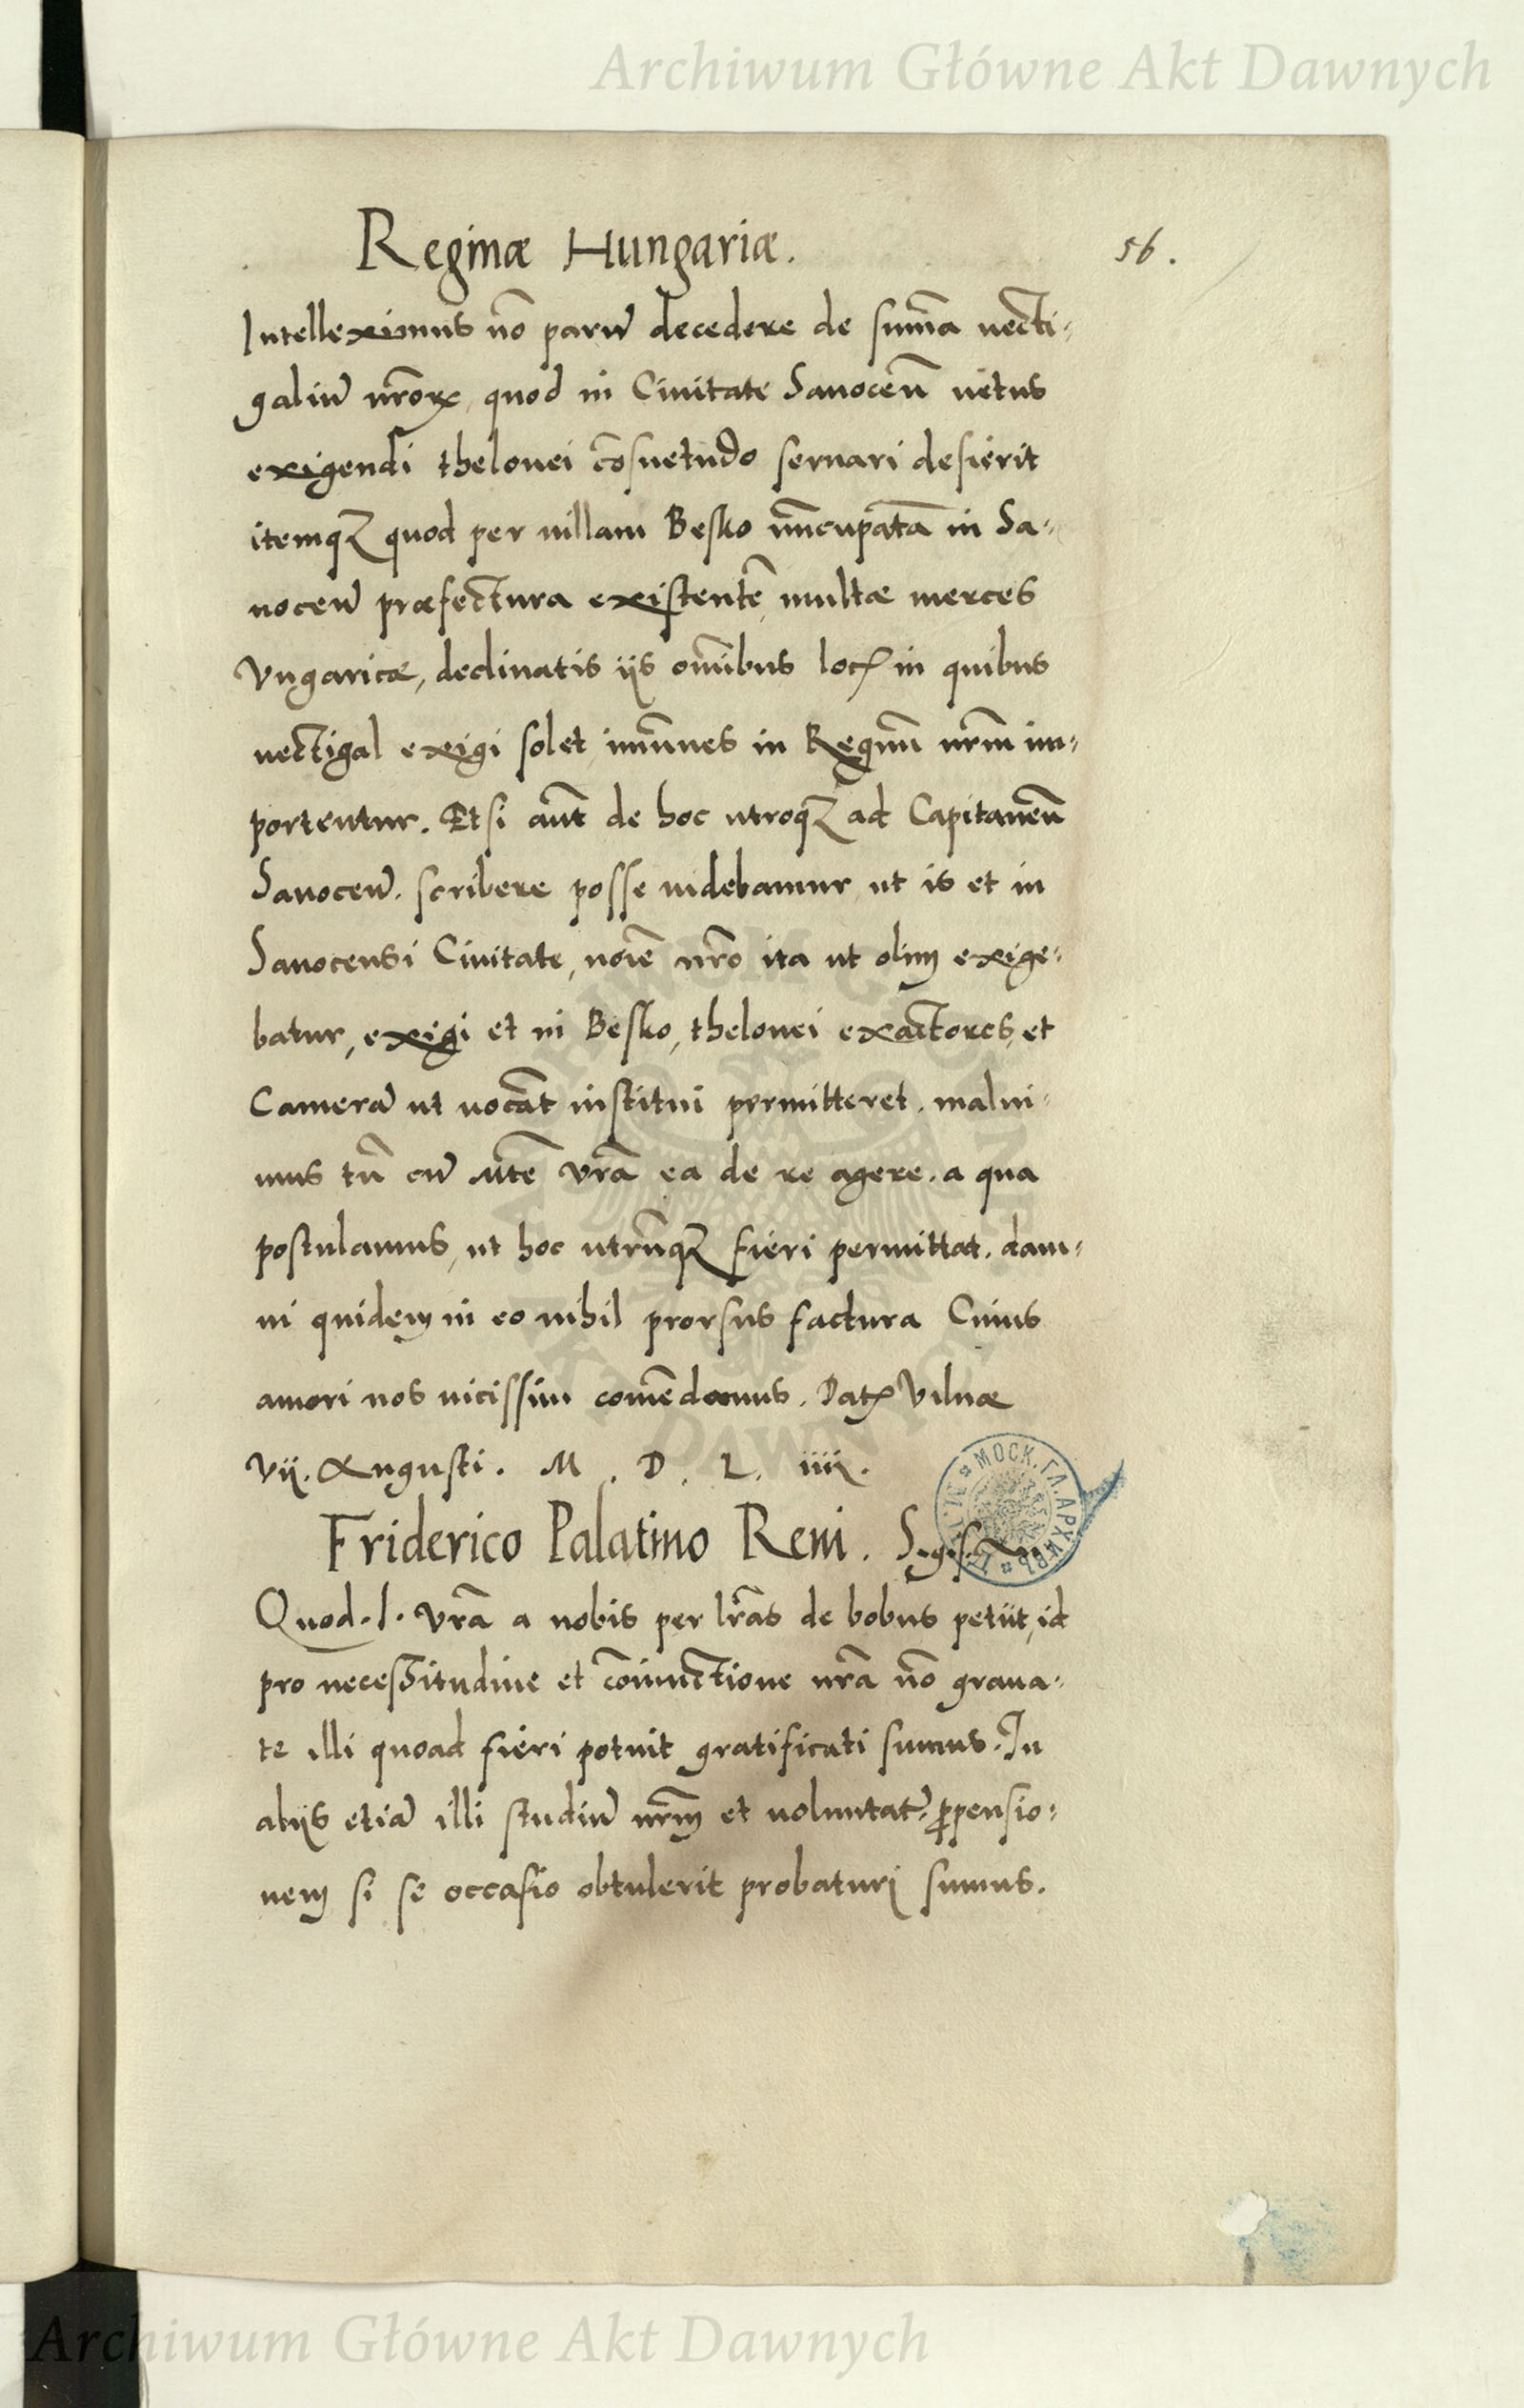 Archiwum Główne Akt Dawnych
Reginæ Hungariæ.
56.
Intelleximus nõ parũ decedere de sum̃a uecti-
galiũ nr̃orꝝ, quod in Ciuitate Sanoceñ uetus
exigendi thelonei cõsuetudo seruari desierit
itemqꝫ quod per uillam Besko nũcupatã in Sa-
noceñ præfectura existentẽ, multæ merces
Vngaricæ, declinatis ijs om̃ibus locꝭ in quibus
uectigal exigi solet, im̃unes in Regnũ nr̃m im-
portentur. Etsi aut̃ de hoc utroqꝫ ad Capitaneũ
Sanoceñ. scribere posse uidebamur, ut is et in
Sanocensi Ciuitate, noĩe nr̃o ita ut olim exige-
batur, exigi et in Besko, thelonei exactores, et
Camerã ut uocãt institui permitteret. malui-
mus tñ cũ Mte͂ Vrã ea de re agere. a qua
postulamus, ut hoc utrũqꝫ fieri permittat. dam-
ni quidem in eo nihil prorsus factura Cuius
amori nos uicissim com̃edamus. Datꝭ Vilnæ
Vij. Augusti. M. D. L. iiij.
Friderico Palatino Reni. Sigis.
МОСК. ГЛ. АРХИВЪ
Quod. S. Vrã a nobis per lr̃as de bobus petijt, id
pro necessitudine et cõiunctione nrã nõ graua-
te illi quoad fieri potuit gratificati sumus. In
alijs etiã illi studiũ nr̃m et uoluntatꝭ ꝓpensio-
nem si se occasio obtulerit probaturi sumus.
Archiwum Główne Akt Dawnych